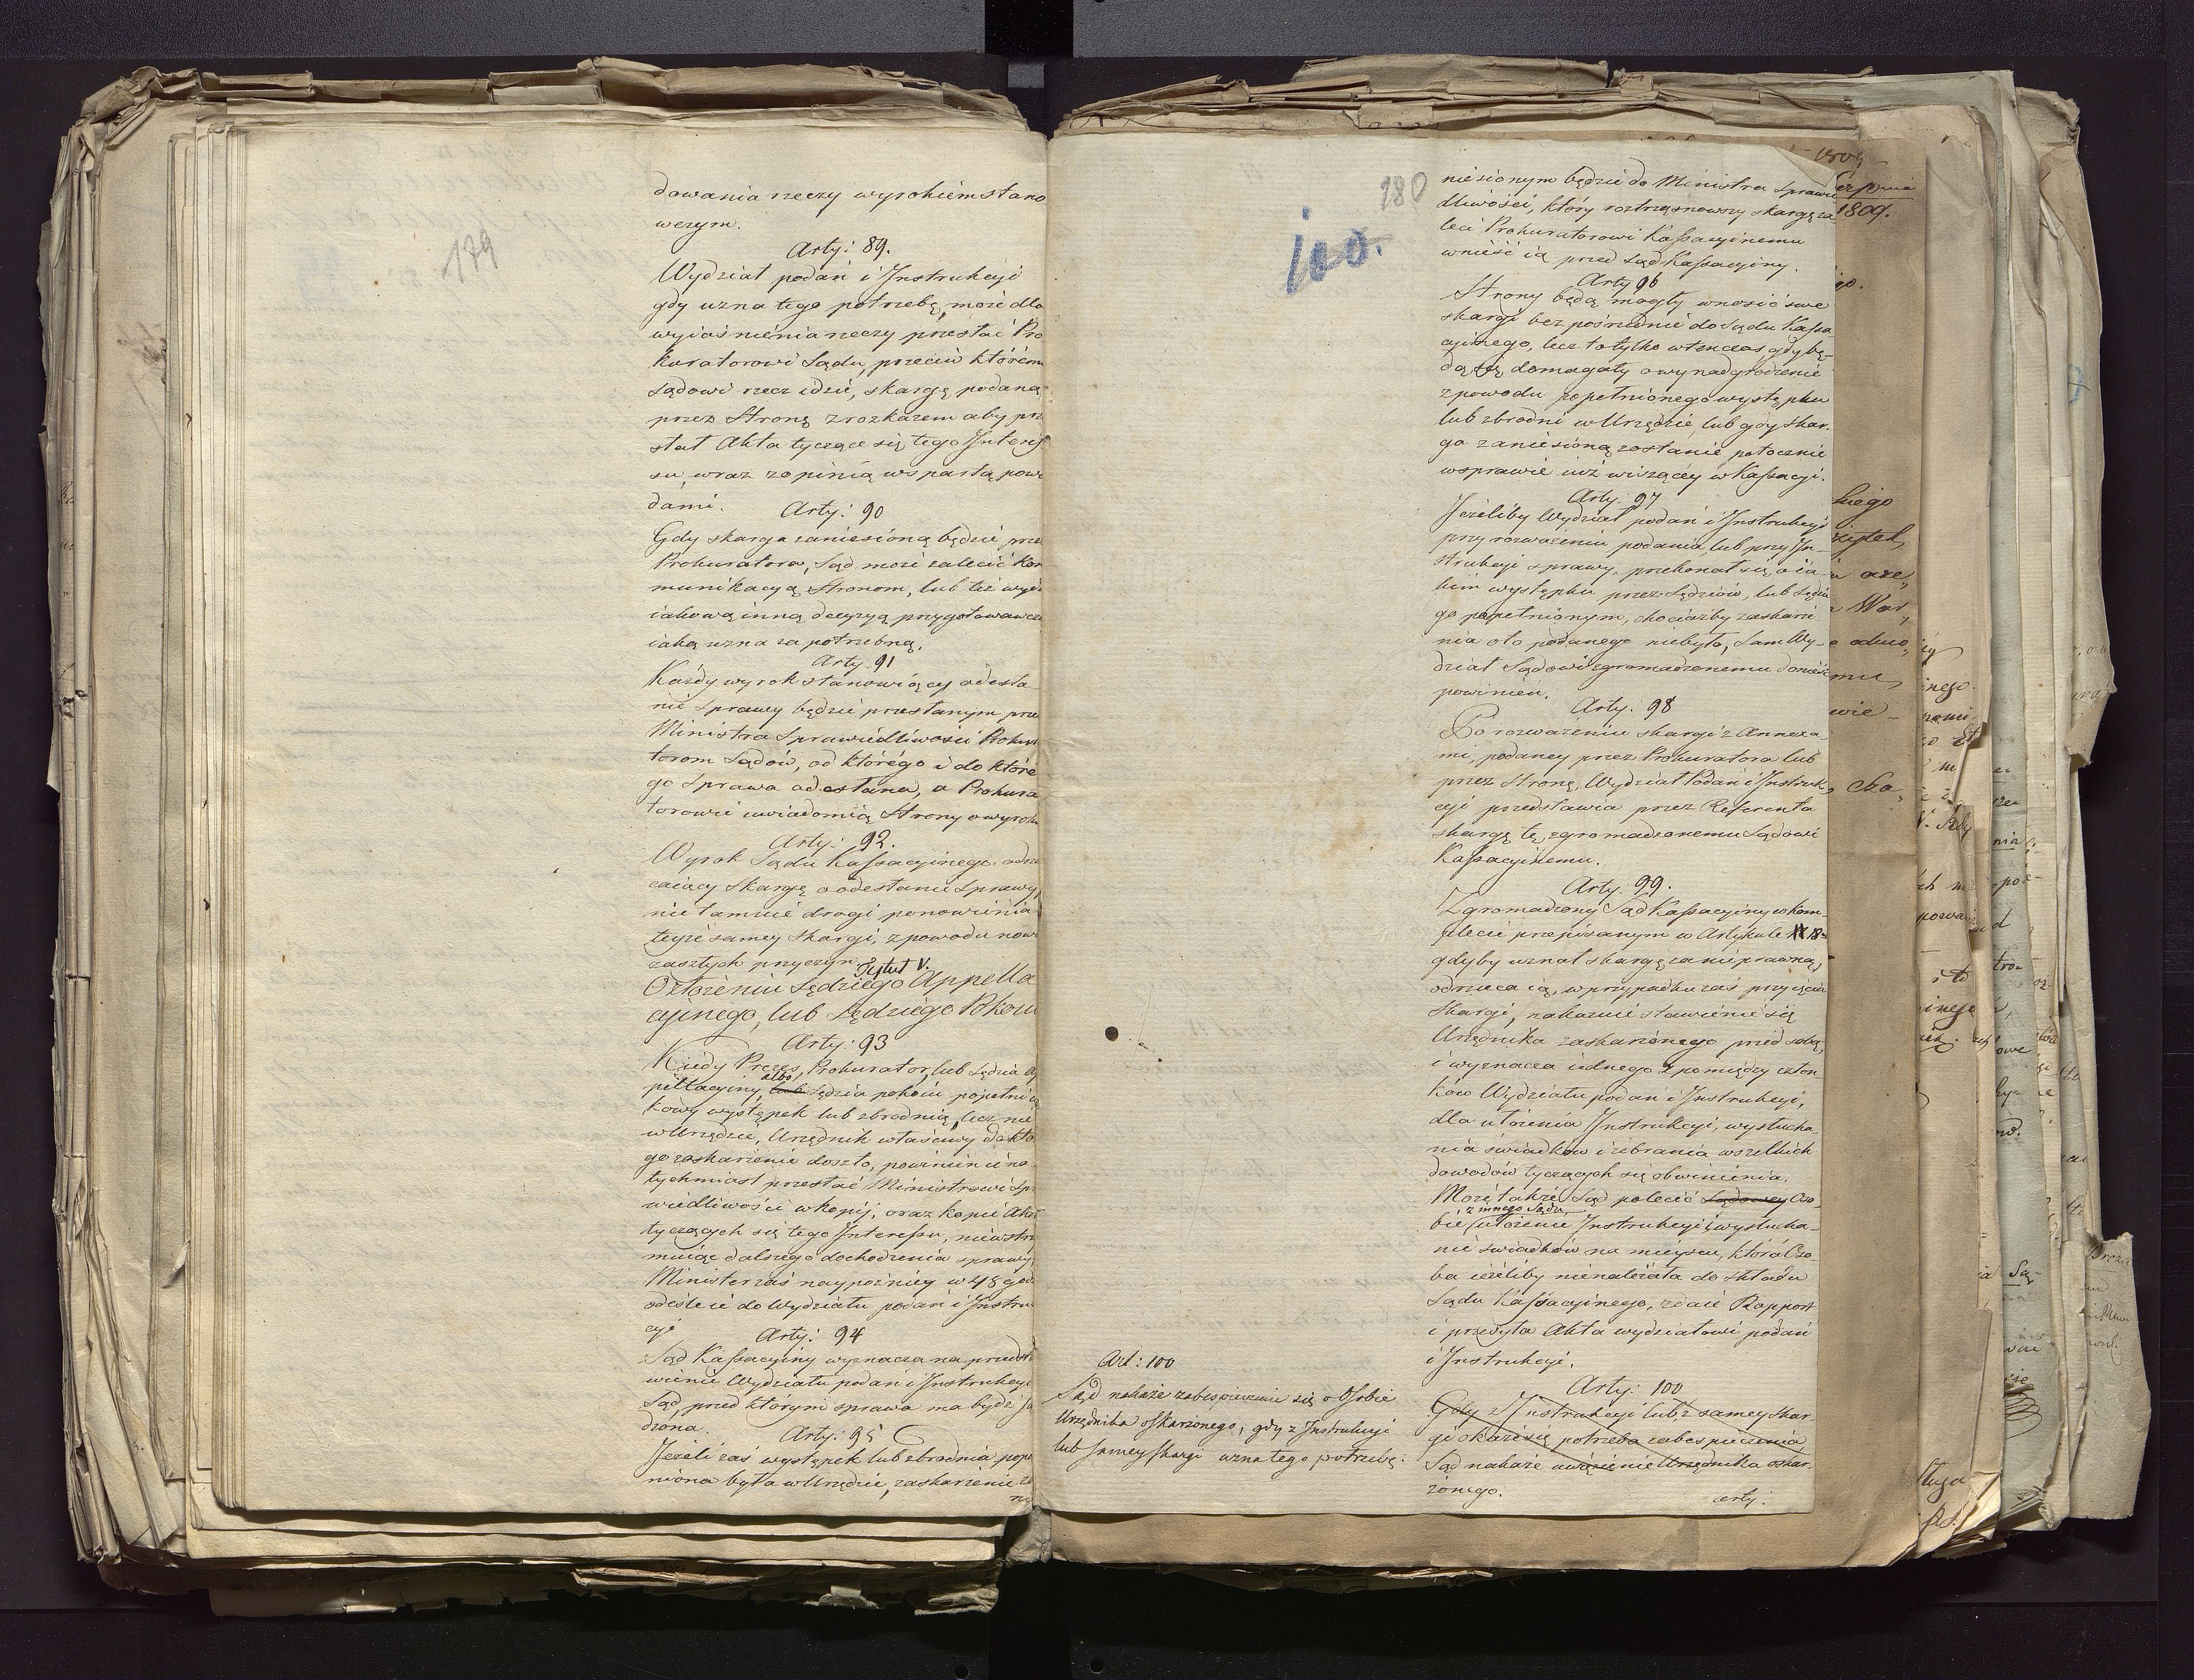 179
dowania rzeczy wyrokiem stano
wczym.
Arty: 89.
Wydział podań i Instrukcyi
gdy uzna tego potrzebę, może dla
wyiaśnienia rzeczy przesłać Pro
kuratorowi Sądu, przeciw którem
Sądowi rzecz idzie, skargę podaną
przez Stronę z rozkazem aby prze
słał Akta tyczące się tego Interes
su, wraz z opinią wspartą powo
dami.
Arty: 90
Gdy skarga zaniesioną będzie prze
Prokuratora, Sąd może zalecić Kom
munikacyą Stronom, lub też wyd
iakową inną decyzyą przygotowawcz
iaką uzna za potrzebną.
Arty. 91
Każdy wyrok stanowiący odesła
nie Sprawy będzie przesłanym prze
Ministra Sprawiedliwości Prokura
torom Sądów, od którego i do które
go Sprawa odesłana, a Prokura
torowie uwiadomią Strony o wyroku
Arty: 92.
Wyrok Sądu Kassacyinego odrzu
caiący Skargę o odesłanie Sprawy,
nie tamuie drogi ponowienia
teyże samey Skargi, z powodu nowo
zaszłych przyczyn.
Tytuł V.
O złożeniu Sędziego Appella
cyinego, lub Sędziego Pokoiu
Arty: 93
Kiedy Prezes, Prokurator, lub Sędzia Ap
pellacyiny, albo lub Sędzia pokoiu popełni ia
kowy występek lub zbrodnią, lecz nie
w Urzędzie, Urzędnik właściwy do któ
go zaskarżenie doszło, powinien ie na
tychmiast przesłać Ministrowi Spra
wiedliwości w kopij, oraz kopie Akt
tyczących się tego Interessu, niewstrzy
muiąc dalszego dochodzenia sprawy,
Minister zaś naypóźniey w 48 god
odeśle ie do Wydziału podań i Instru
cyi
Arty: 94
Sąd Kassacyiny wyznacza na przedsta
wienie Wydziału podań i Instrukcyi
Sąd, przed którym sprawa ma bydź są
dzona.
Arty: 95
Jeżeli zaś występek lub zbrodnia pope
niona była w Urzędzie, zaskarżenie za
nie
180
100.
niesionym będzie do Ministra Sprawie
dliwości, który roztrząsnowszy skargę za
leci Prokuratorowi Kassacyinemu
wnieść ią przed Sąd Kassacyiny.
Arty 96
Strony będą mogły wnosić swe
skargi bez pośrednie do Sądu Kassa
cyinego, lecz to tylko wtenczas, gdy bę-
dą się domagały o wynadgrodzenie
z powodu popełnionego występku
lub zbrodni w Urzędzie, lub gdy skar-
ga zaniesioną zostanie potocznie
w sprawie iuż wiszącéy w Kassacyi.
Arty. 97
Jeżeliby Wydział podań i Instrukcyi
przy rozważeniu podania, lub przy In-
strukcyi sprawy, przekonał się o ia-
kim występku przez Sędziów, lub Sędzie
go popełnionym, chociażby zaskarże
nia oto podanego niebyło, Sam Wy-
dział Sądowi zgromadzonemu donieść
powinien.
Arty. 98
Po rozważeniu skargi z Annexa-
mi, podaney przez Prokuratora lub
przez Stronę, Wydział Podań i Instruk
cyi przedstawia przez Referenta
skargę tę, zgromadzonemu Sądowi
Kassacyinemu.
Arty. 99.
Zgromadzony Sąd Kassacyiny w Kom-
plecie przepisanym w Artykule 18
gdyby uznał skargę za nieprawną,
odrzuca ią, w przypadku zaś przyięcia
skargi, nakazuie stawienie się
Urzędnika zaskarżonego przed sobą,
i wyznacza iednego z pomiędzy człon
ków Wydziału podań i Instrukcyi,
dla ułożenia Instrukcyi, wysłucha-
nia świadków i zebrania wszelkich
dowodów tyczących się obwinienia.
Może także Sąd polecić Sądowey Oso-
z innego Sądu
bie ułożenie Instrukcyi i wysłucha-
nie świadków na mieyscu, która Oso-
ba ieżeliby nienależała do składu
Sądu Kassacyinego, zdaie Rapport
i przesyła Akta wydziałowi podań
i Instrukcyi.
Arty: 100
Gdy z Instrukcyi lub z samey skar-
gi okaże się potrzeba zabezpieczenia,
Sąd nakaże uwięzienie Urzędnika oskar-
żonego.
arty.
Art: 100
Sąd nakaże zabezpieczenie się o Osobie
Urzędnika oskarżonego, gdy z Instrukcyi
lub samey skargi uzna tego potrzebę.
1809
1809.